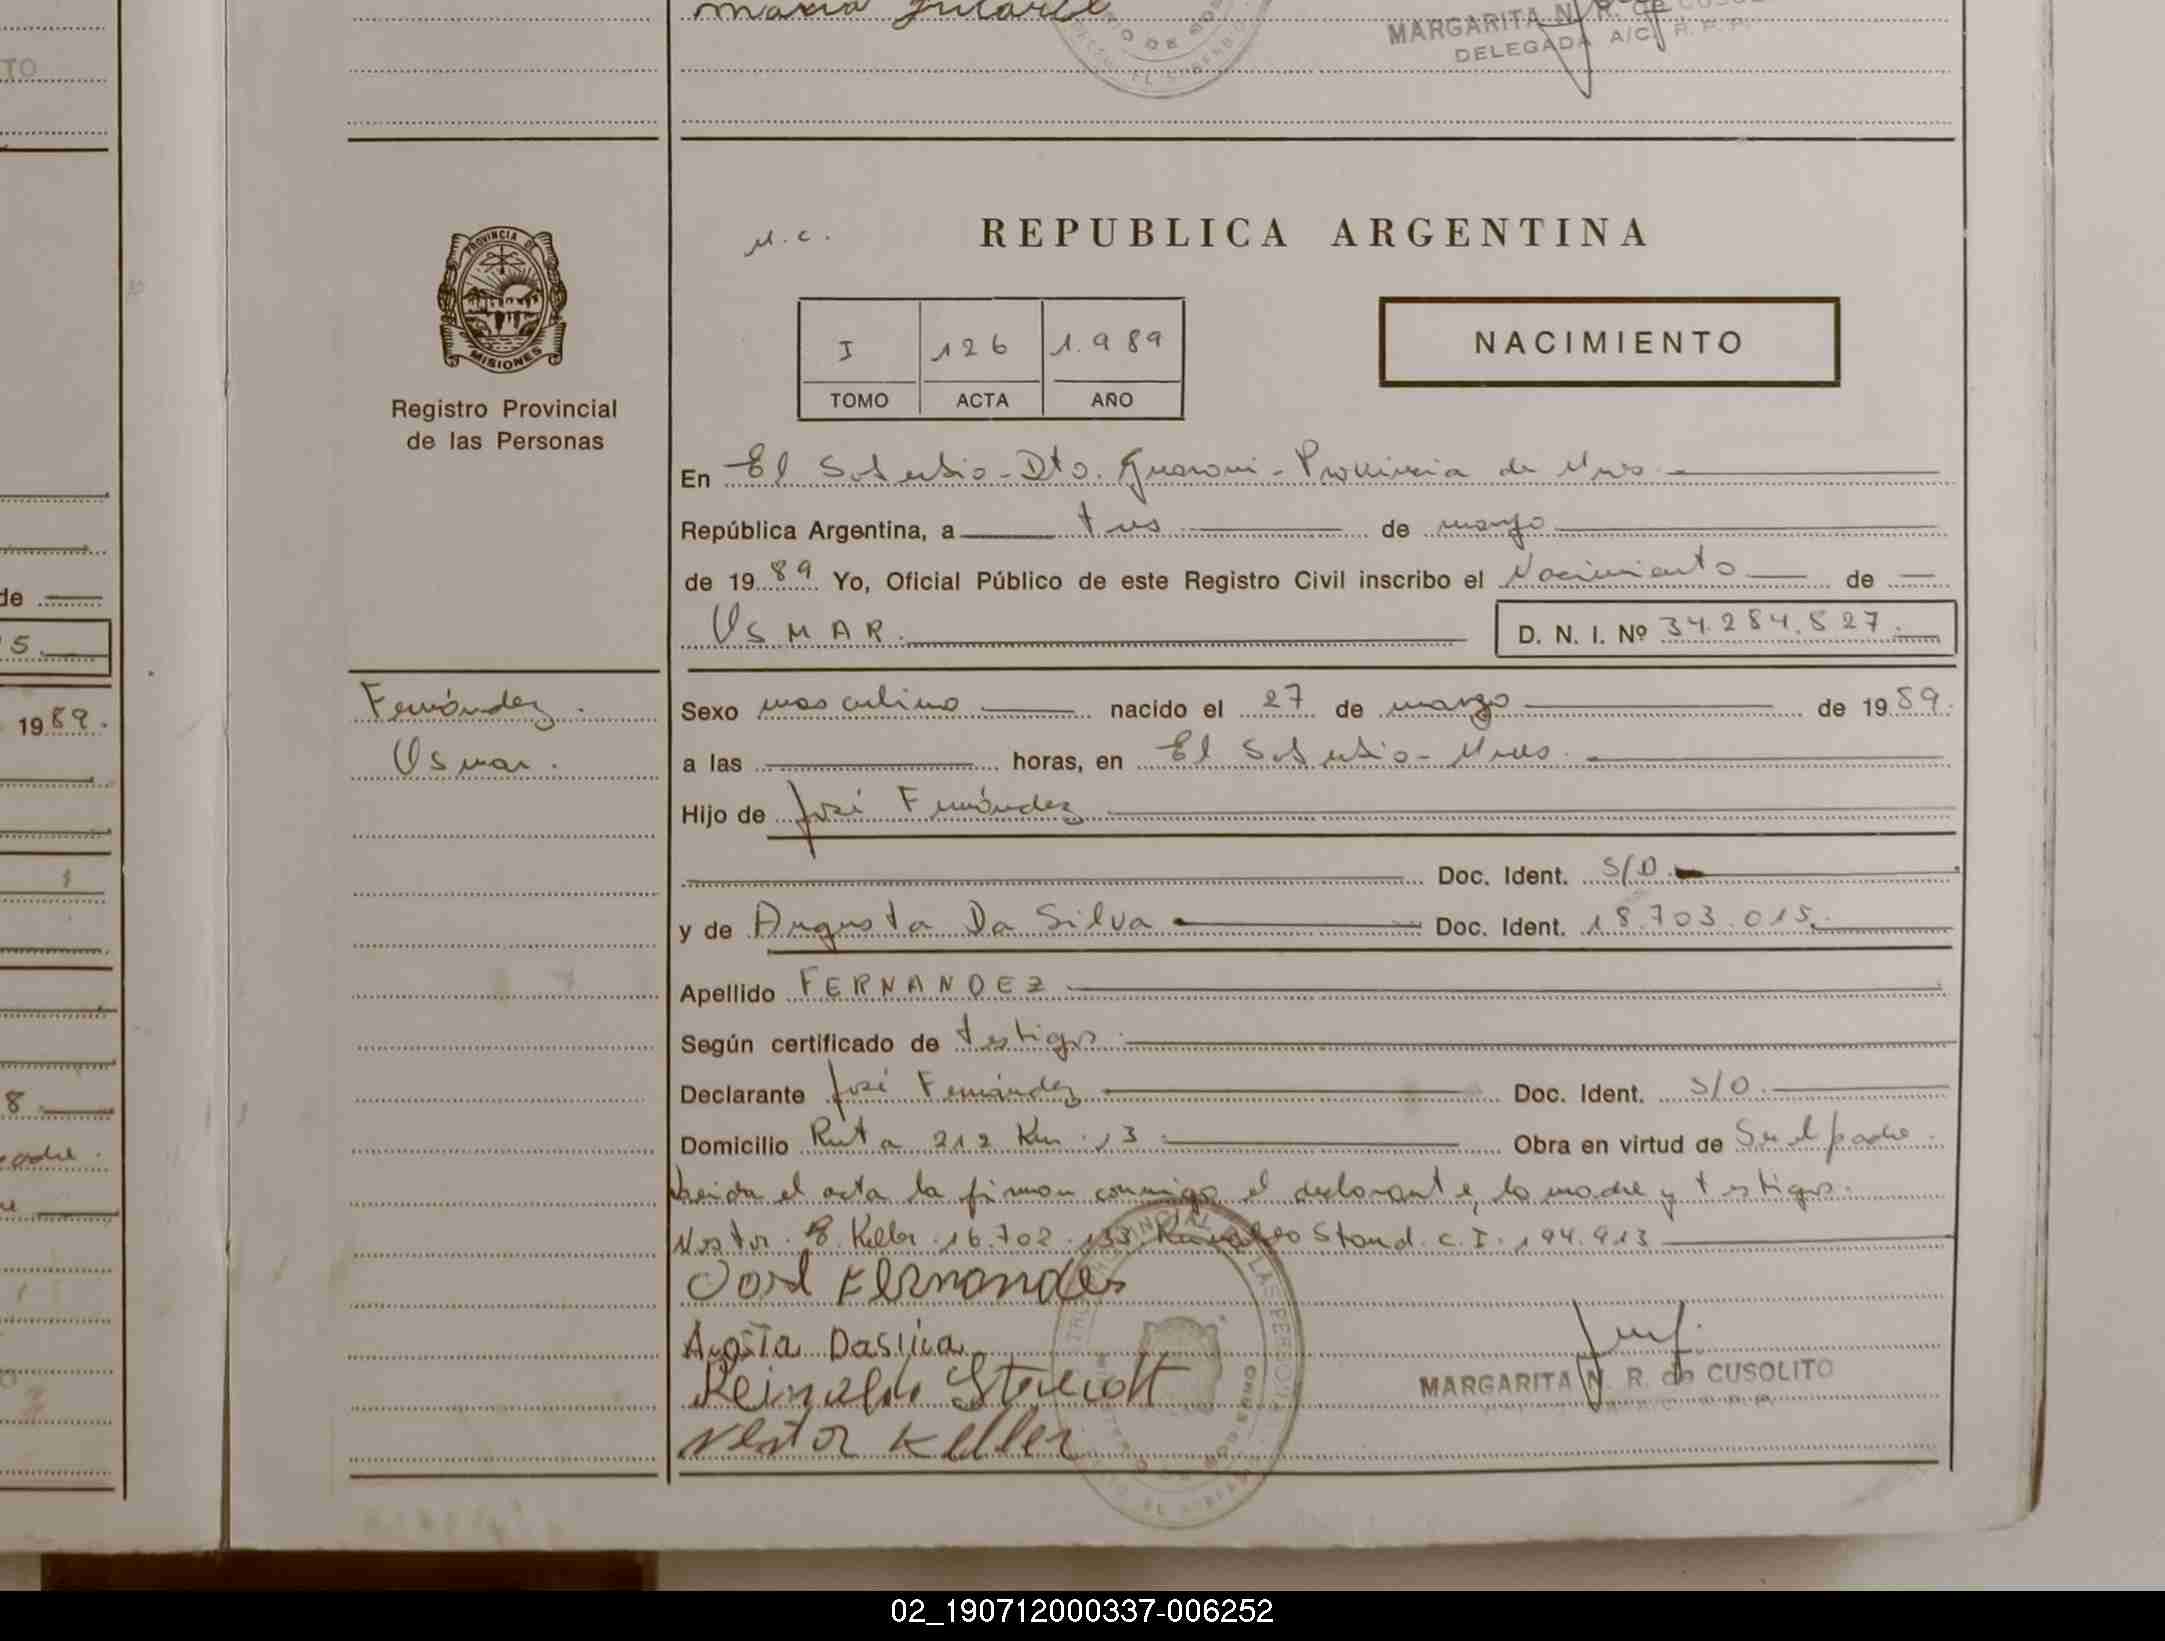 TO
Maria
MARGARITA N. R. de CUSOLITO
DELEGADA A/C. R. P. P.
PROVINCIA DE
MISIONES
Registro Provincial
de las Personas
REPUBLICA ARGENTINA
I 126 1.989
TOMO ACTA AÑO
NACIMIENTO
En El Soberbio - Dto. Guarani - Provincia de Mnes
República Argentina, a tres de marzo
de 1989 Yo, Oficial Público de este Registro Civil inscribo el Nacimiento de
de
USMAR.
D. N. I. Nº 34.284.527.
5.
1989.
Fernández.
Usmar.
Sexo masculino nacido el 27 de marzo de 1989.
a las horas, en El Soberbio - Mnes.
Hijo de José Fernández
Doc. Ident. S/D.
y de Augusta Da Silva Doc. Ident. 18.703.015.
Apellido FERNANDEZ
Según certificado de testigos.
Declarante José Fernández Doc. Ident. S/D.
8.
Domicilio Ruta 212 Km. 13. Obra en virtud de Ser el padre.
padre.
Leida el acta la firman conmigo el declarante, la madre y testigos.
Nestor Keller 16.702.133 C.I. 194.913
José Fernandes
Reinaldo
Nestor Keller
MARGARITA N. R. de CUSOLITO
02_190712000337-006252